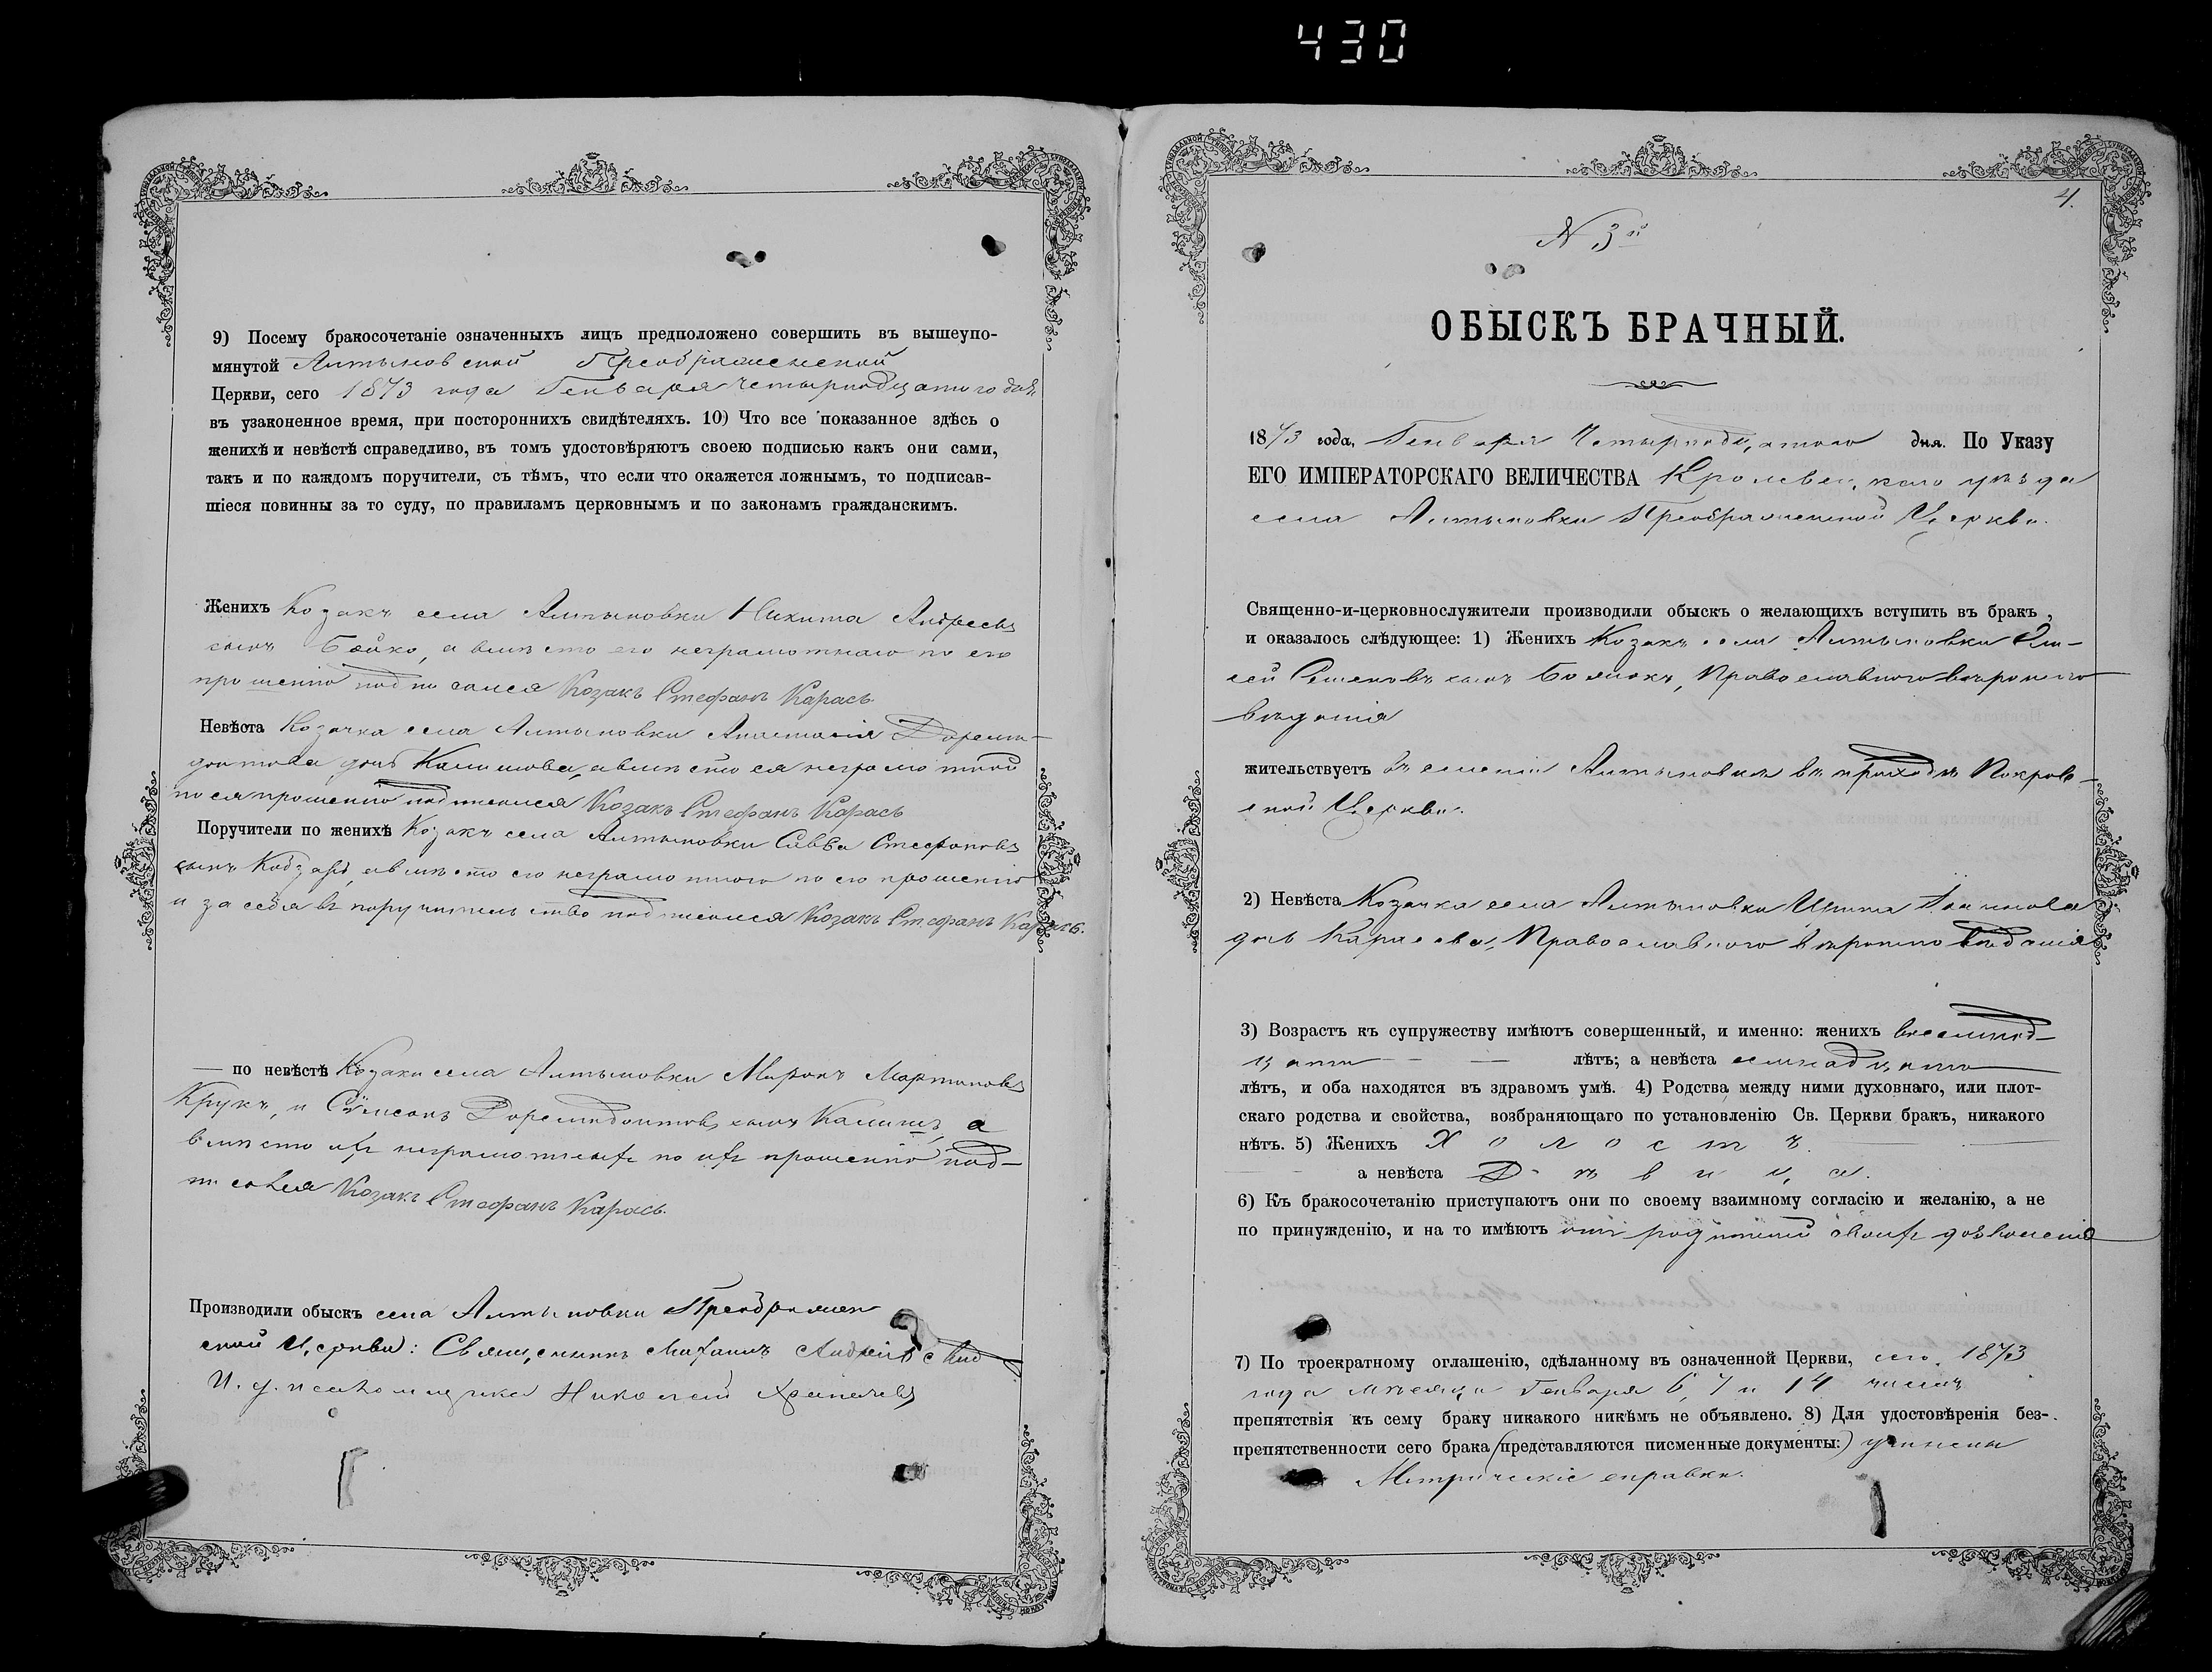 430
9) Посему бракосочетаніе означенныхъ лицъ предположено совершить въ вышеупо-
мянутой Алтыновской Преображенской
Церкви, сего 1873 года Генваря Четырнадцатого дня,
въ узаконенное время, при постороннихъ свидѣтеляхъ. 10) Что все показанное здѣсь о
женихѣ и невѣстѣ справедливо, въ томъ удостовѣряютъ своею подписью какъ они сами,
такъ и по каждомъ поручители, съ тѣмъ, что если что окажется ложнымъ, то подписав-
шіеся повинны за то суду, по правиламъ церковнымъ и по законамъ гражданскимъ.
Женихъ Козакъ села Алтыновки Никита Андреевъ
сынъ Бойко, а вмѣсто его неграмотнаго по его
прошенію подписался Козакъ Стефанъ Карась.
Невѣста Козачка села Алтыновки Анастасія
дочь а вмѣсто ея неграмотной
по ея прошенію подписался Козакъ Стефанъ Карась
Поручители по женихѣ Козакъ села Алтыновки Савва Стефановъ
сынъ Кобзарь, а вмѣсто его неграмотного по его прошенію
и за себя въ поручительство подписался Козакъ Стефанъ Карась.
— по невѣстѣ Козаки села Алтыновки Миронъ Мартиновъ
Крукъ, и сынъ а
вмѣсто ихъ неграмотныхъ по ихъ прошенію под-
писался Козакъ Стефанъ Карась.
Производили обыскъ села Алтыновки Преображен
ской Церкви: Священникъ
И. д. псаломщика Николай
4.
N 3й
ОБЫСКЪ БРАЧНЫЙ.
1873 года, Генваря Четырнадцатого дня. По Указу
ЕГО ИМПЕРАТОРСКАГО ВЕЛИЧЕСТВА Кролевецкого уѣзда
села Алтыновки Преображенской Церкви.
Священно-и-церковнослужители производили обыскъ о желающихъ вступить въ бракъ,
и оказалось слѣдующее: 1) Женихъ Козакъ села Алтыновки
сынъ Православного вѣроиспо
вѣданія
жительствуетъ въ селеніи Алтыновкѣ въ приходѣ Покров-
ской Церкви.
2) Невѣста Козачка села Алтыновки
дочь Карасева, Православного вѣроисповѣданія
3) Возрастъ къ супружеству имѣютъ совершенный, и именно: женихъ восемнад-
цати лѣтъ; а невѣста семнадцати
лѣтъ, и оба находятся въ здравомъ умѣ. 4) Родства между ними духовнаго, или плот-
скаго родства и свойства, возбраняющаго по установленію Св. Церкви бракъ, никакого
нѣтъ. 5) Женихъ Холостъ.
а невѣста Дѣвица.
6) Къ бракосочетанію приступаютъ они по своему взаимному согласію и желанію, а не
по принужденію, и на то имѣютъ отъ родителей своихъ дозволеніе
7) По троекратному оглашенію, сдѣланному въ означенной Церкви, сего 1873
года мѣсяца Генваря 6, 7 и 14 числъ
препятствія къ сему браку никакого никѣмъ не объявлено. 8) Для удостовѣренія без-
препятственности сего брака (представляются писменные документы:) учинены
Метрическіе справки.